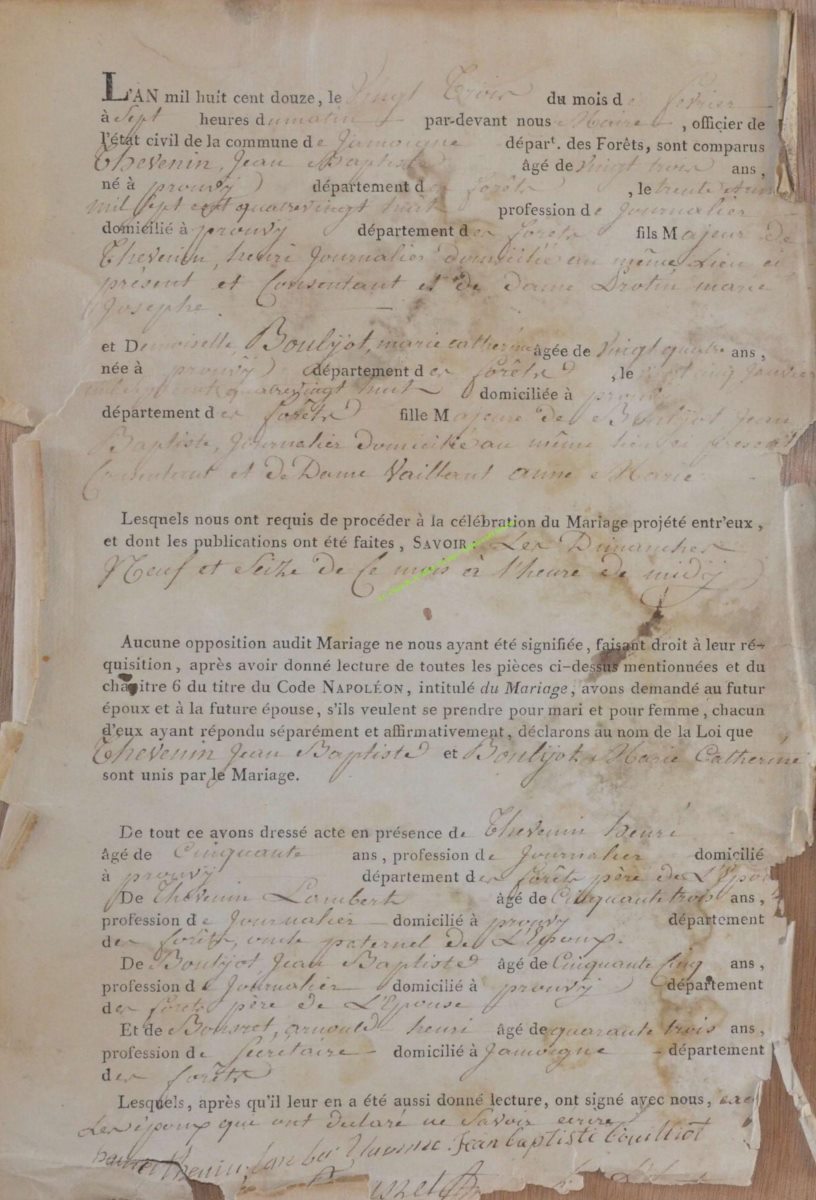 L'AN mil huit cent douze, le Vingt Trois du mois de fevrier
à Sept heures du matin par-devant nous Maire, officier de
l'état civil de la commune de Jamoigne départ. des Forêts, sont comparus
Thevenin, Jean Baptiste âgé de vingt trois ans,
né à prouvy département des forêts, le trente
mil sept cent quatrevingt huit profession de Journalier
domicilié à prouvy département des forêts fils Majeur de
Thevenin, henri Journalier domicilié au même Lieu ci
présent et Consentant et de dame Drotin marie
Josephe
et Demoiselle Boulijot, marie catherine âgée de vingt quatre ans,
née à prouvy département des forêts, le vingt cinq Janvier
mil sept cent quatrevingt huit domiciliée à prouvy
département des forêts fille Majeure de Boulijot Jean
Baptiste, Journalier domicilié au même lieu ci présent
Consentant et de Dame Vaillant anne Marie
Lesquels nous ont requis de procéder à la célébration du Mariage projété entr'eux,
et dont les publications ont été faites, SAVOIR : Les Dimanches
Neuf et Seize de Ce mois à l'heure de midy
Aucune opposition audit Mariage ne nous ayant été signifiée, faisant droit à leur ré-
quisition, après avoir donné lecture de toutes les pièces ci-dessus mentionnées et du
chapitre 6 du titre du Code NAPOLÉON, intitulé du Mariage, avons demandé au futur
époux et à la future épouse, s'ils veulent se prendre pour mari et pour femme, chacun
d'eux ayant répondu séparément et affirmativement, déclarons au nom de la Loi que
Thevenin Jean Baptiste et Boulijot Marie Catherine
sont unis par le Mariage.
De tout ce avons dressé acte en présence de Thevenin henri
âgé de Cinquante ans, profession de Journalier domicilié
à prouvy département des forêts père de L'Epoux
De Thevenin Lambert âgé de Cinquante trois ans,
profession de Journalier domicilié à prouvy département
des forêts, oncle paternel de L'Epoux.
De Boulijot, Jean Baptiste âgé de Cinquante Cinq ans,
profession de Journalier domicilié à prouvy département
des forêts père de L'Epouse
Et de arnould henri âgé de quarante trois ans,
profession de Secrétaire domicilié à Jamoigne département
des forêts
Lesquels, après qu'il leur en a été aussi donné lecture, ont signé avec nous,
Les époux que ont declaré ne Savoir ecrire
Jean baptiste